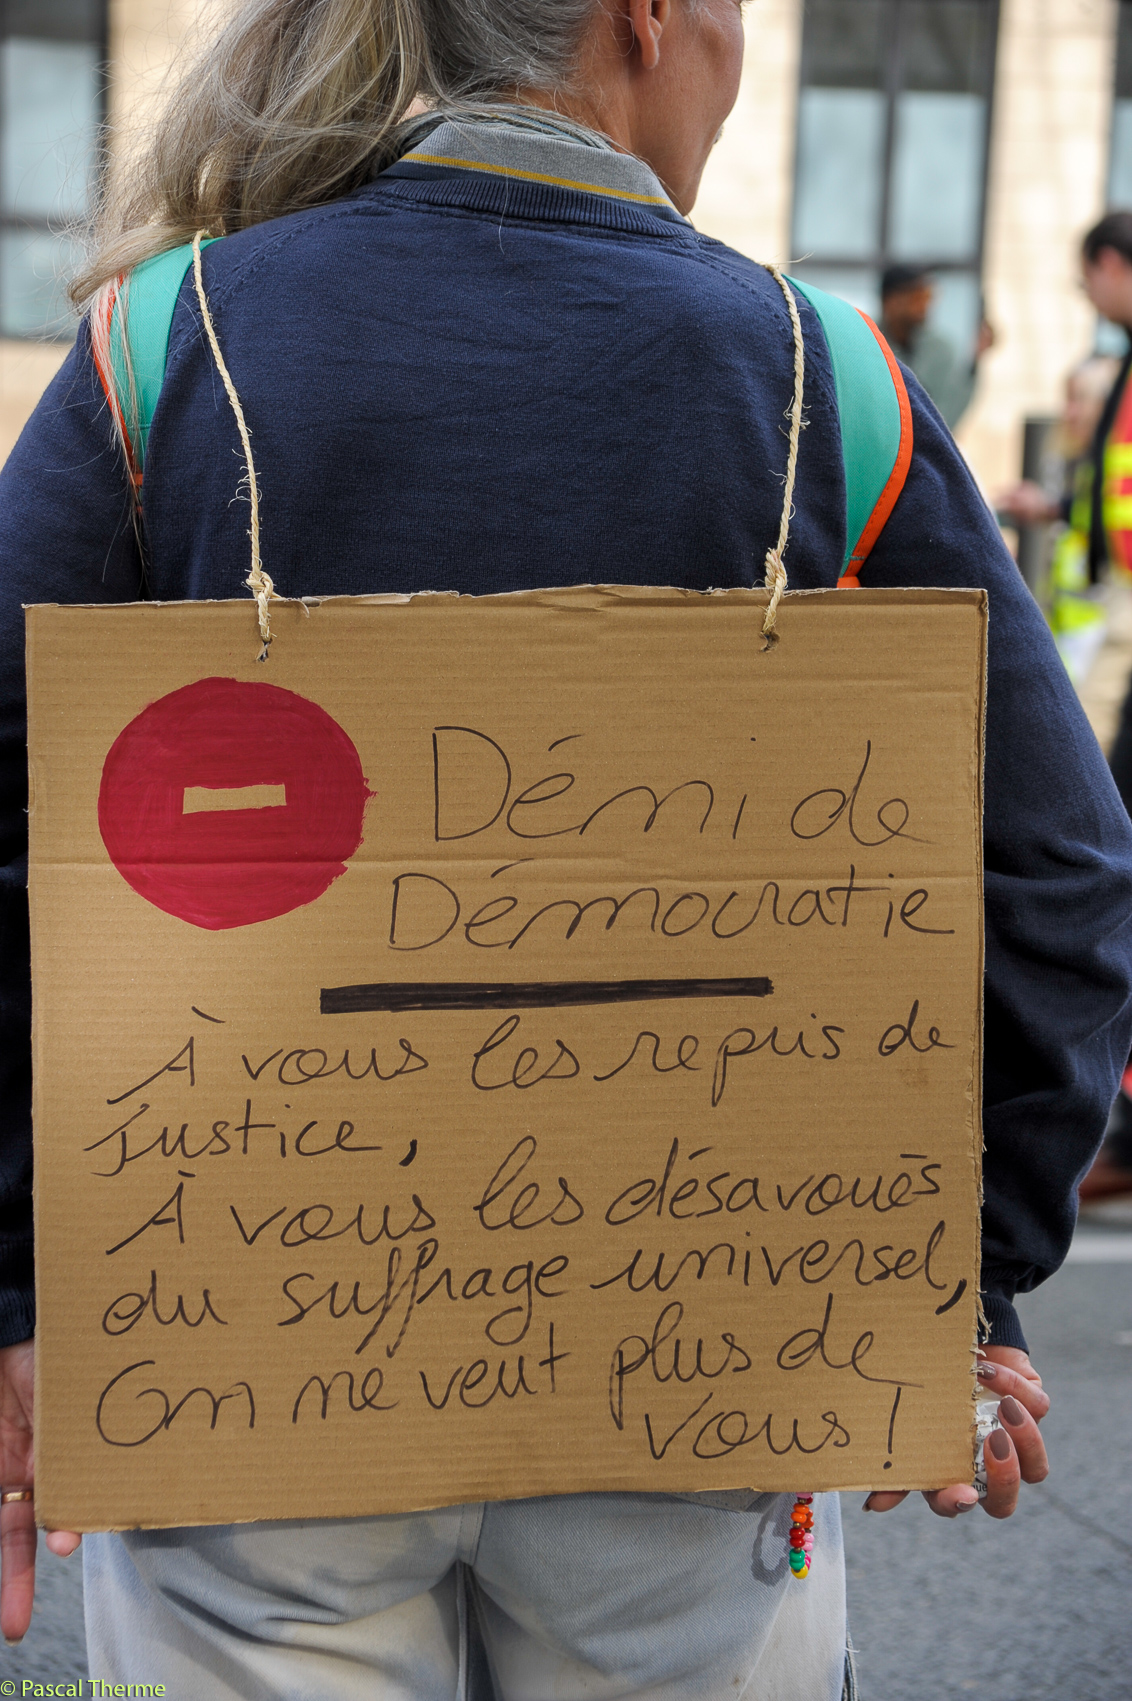 Démi de
Démocratie
À vous les repris de
justice,
À vous les désavoués
du suffrage universel,
On ne veut plus de
vous !
© Pascal Therme